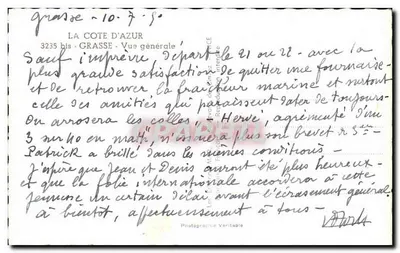 Grasse - 10. 7. 50
LA COTE D'AZUR
3235 bis - GRASSE - Vue générale
Sauf imprévu, départ le 21 ou 22 - avec la
plus grande satisfaction de quitter une fournaise -
et de retrouver la fraîcheur marine et surtout
celle des amitiés qui paraissent dater de toujours -
On arrosera les colles, - Hervé, agrémenté d'un
3 sur 40 en math, n'aura plus son brevet
Patrick a brillé dans les mêmes conditions -
J'espère que Jean et Denis auront été plus heureux -
et que la folie internationale accordera à cette
jeunesse un certain délai avant l'écrasement général
à bientôt, affectueusement à tous -
Photographie Véritable